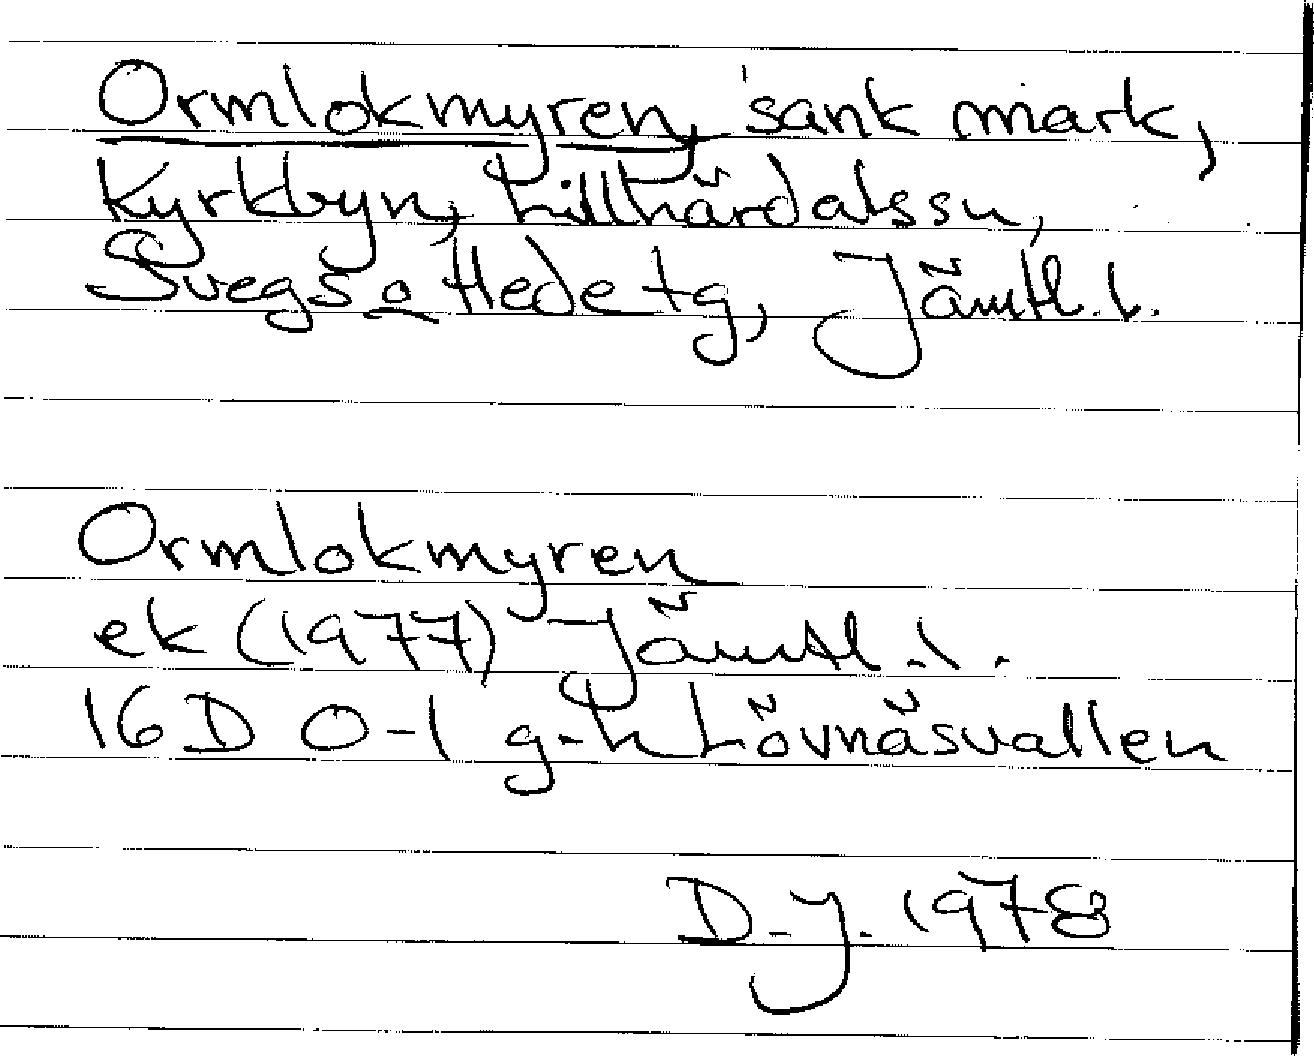 Ormlokmyren, sank mark,
Kyrkbyn, Lillhärdalssn,
Svegs o Hede tg, Jämtl.l.
Ormlokmyren
ek (1977) Jämtl.l.
16D 0-1 g-h Lövnäsvallen
D.J. 1978